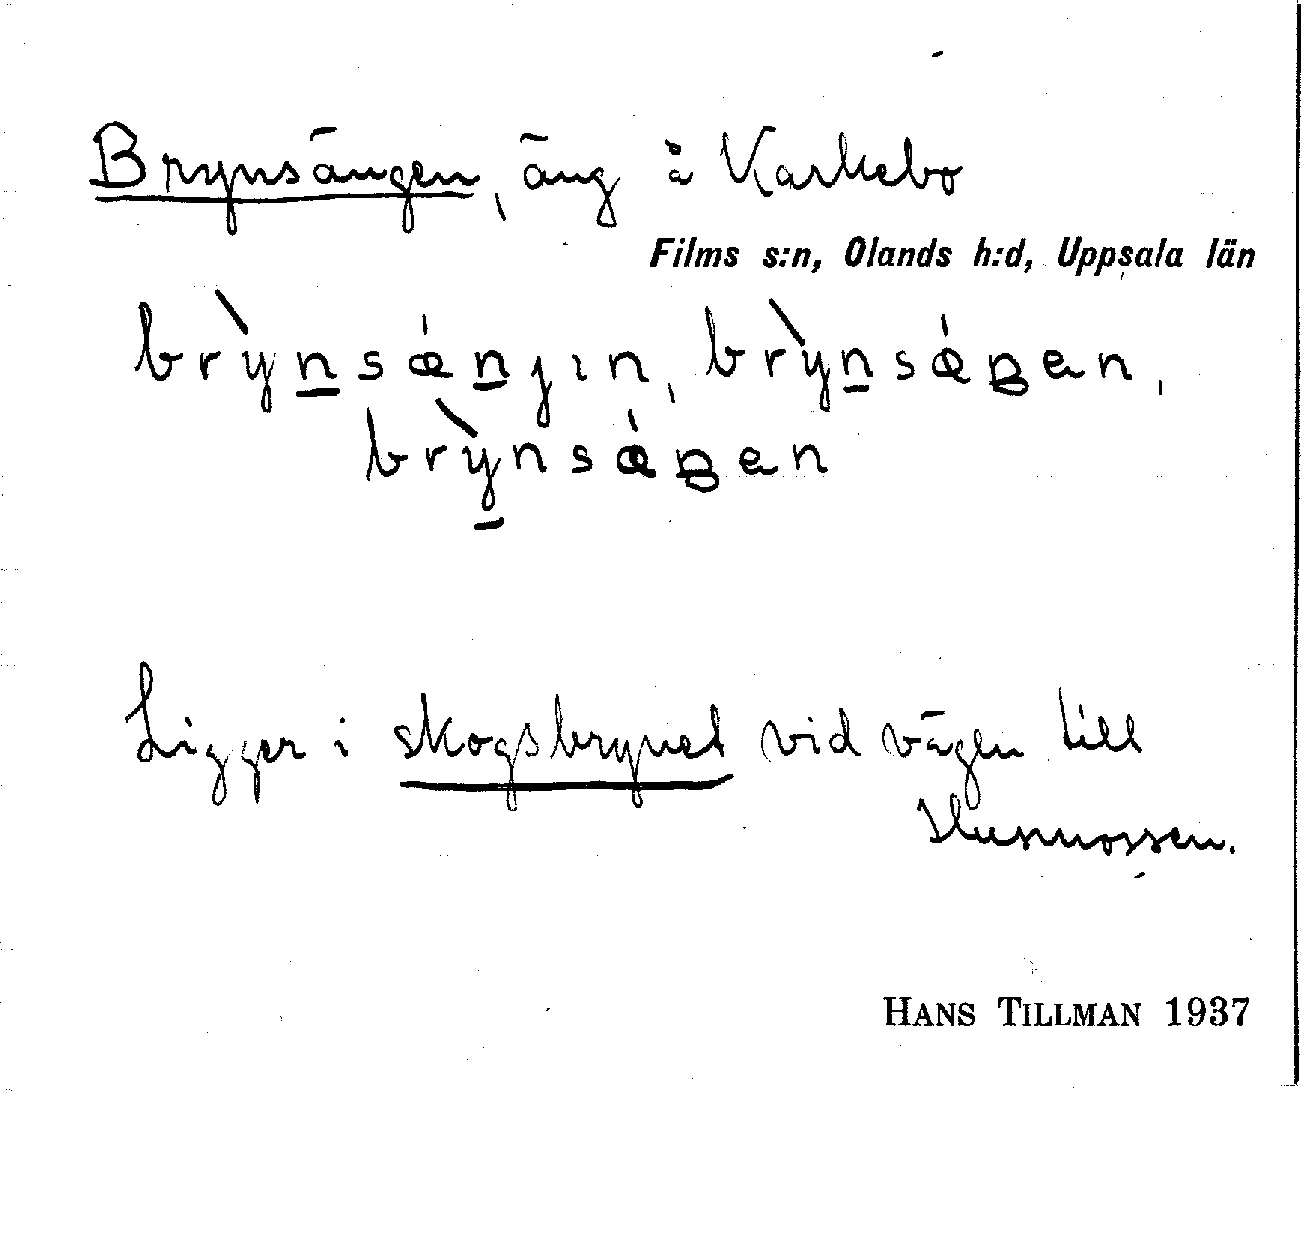 Brynsängen, äng å Karkebo
Films s:n, Olands h:d, Uppsala län
brỳnsǽnȷın, brỳnsǽŋen,
brỳnsǽŋen
Ligger i skogsbrynet vid vägen till
Husmossen.
HANS TILLMAN 1937